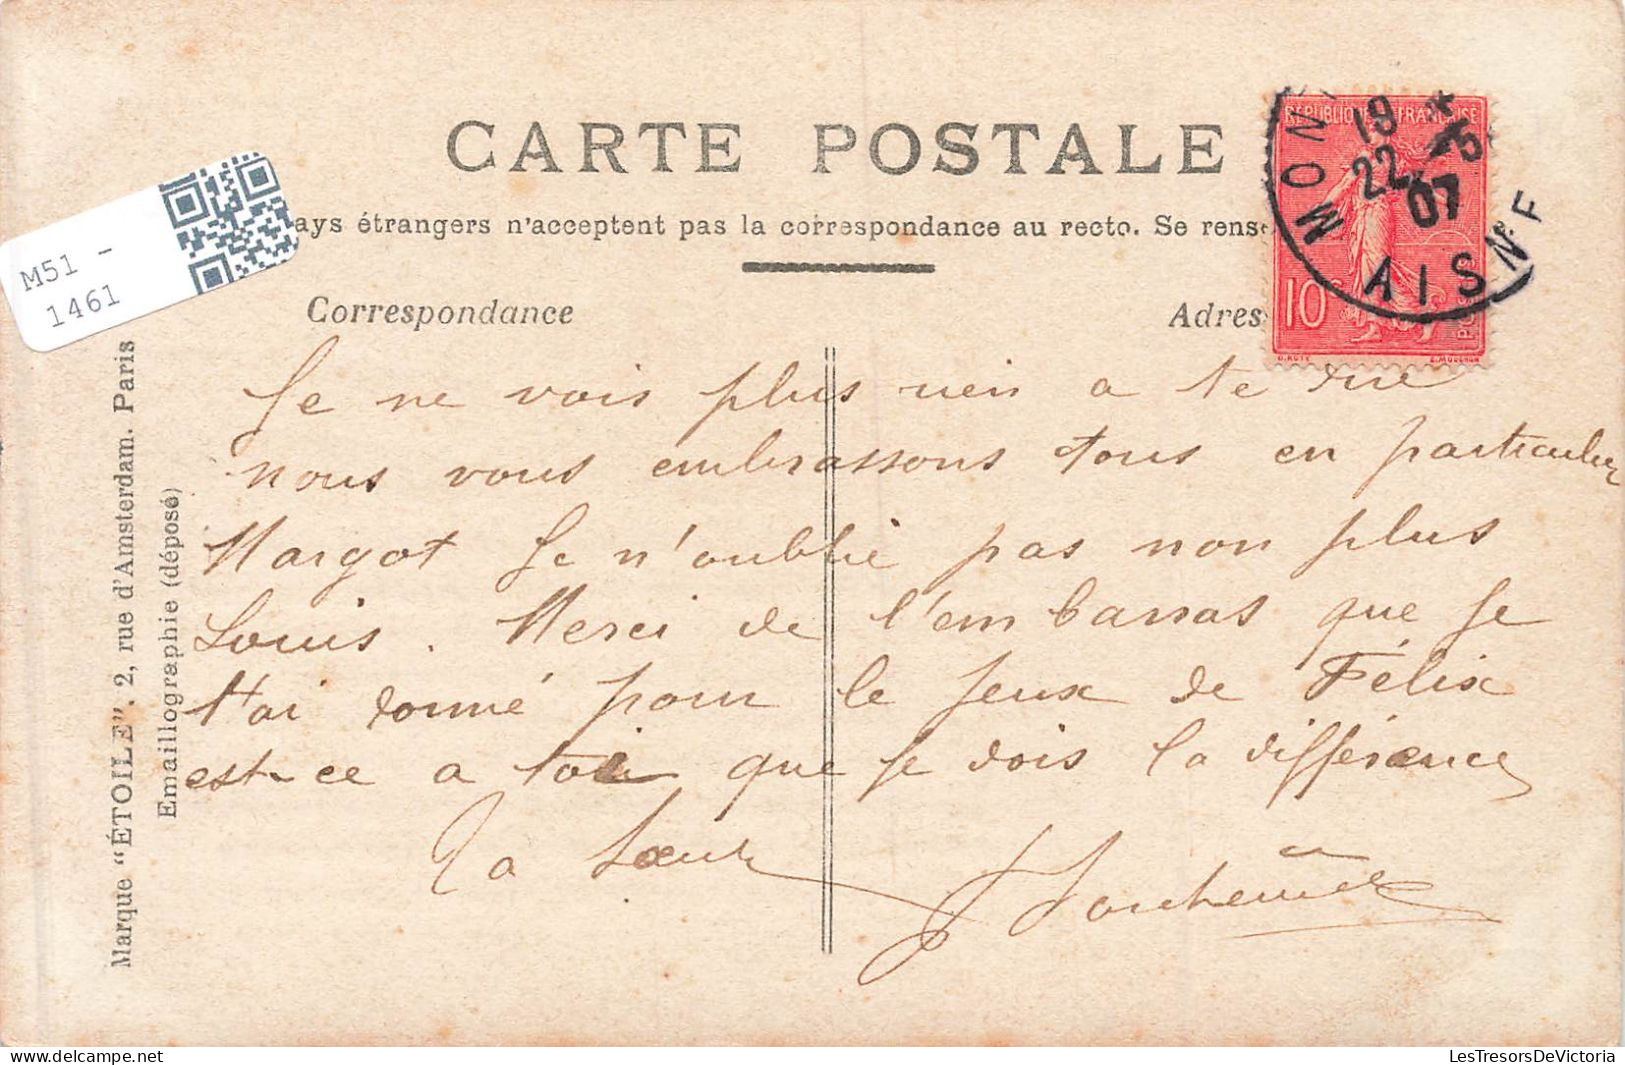 CARTE POSTALE
ays étrangers n'acceptent pas la correspondance au recto. Se rense
Correspondance
Adres
RÉPUBLIQUE FRANÇAISE
10c
O. ROTY
E. MOUCHON
MON
19
22 5
07
AISNE
M51 -
1461
Marque "ÉTOILE". 2, rue d'Amsterdam. Paris
Emaillographie (déposé)
Je ne vois plus rien a te dire
nous vous embrassons tous en particulier
Margot Je n'oublie pas non plus
Louis. Merci de l'embarras que je
t'ai donné pour le jeux de Félix
est-ce a toi que je dois la différence
Ta Soeur
LesTresorsDeVictoria
delcampe.net